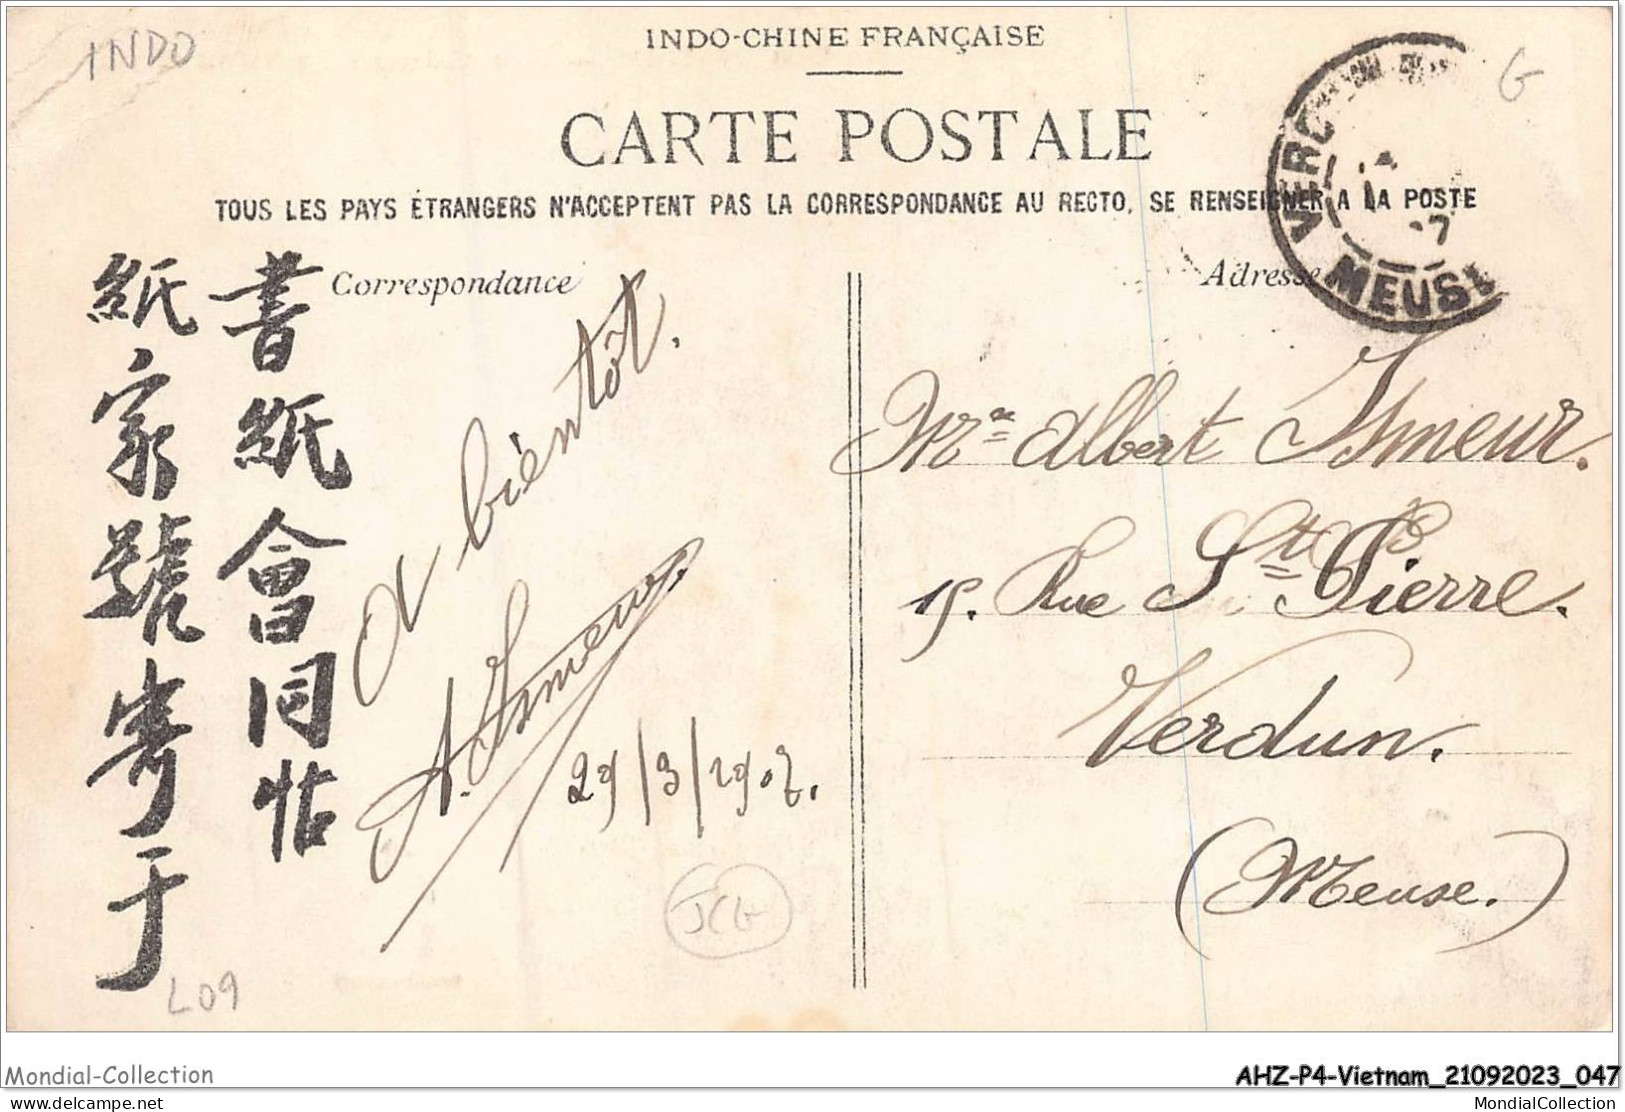 INDO
G
INDO-CHINE FRANÇAISE
CARTE POSTALE
TOUS LES PAYS ÉTRANGERS N'ACCEPTENT PAS LA CORRESPONDANCE AU RECTO, SE RENSEIGNER A LA POSTE
MEUSE
Correspondance
Adresse
書紙會同帖
紙家號寄于
A bientôt.
A. Ismeur.
29/3/1907.
JCG
L09
Mme Albert Ismeur.
15. Rue St Pierre.
Verdun.
(Meuse.)
Mondial-Collection
AHZ-P4-Vietnam_21092023_047
delcampe.net
MondialCollection